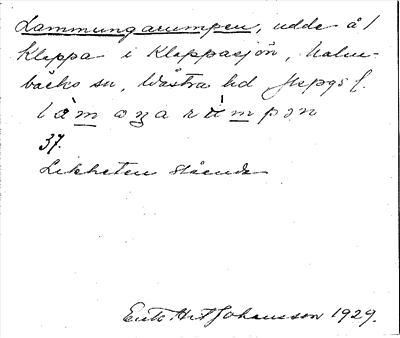 Lammungarumpen, udde å /
Klappa i Klappasjön, Malm-
bäcks sn, Västra hd Jkpgs l.
làmoŋarùmpən
37.
Likheten slående
Erik Johansson 1929.